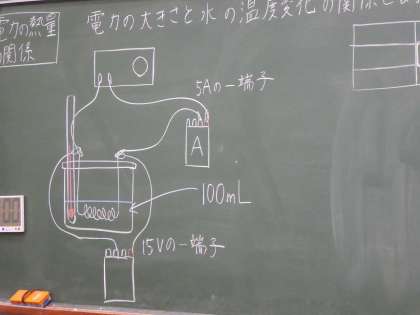 電力の大きさと水の温度変化の関係
電力の熱量
の関係
5Aの一端子
A
100mL
15Vの一端子